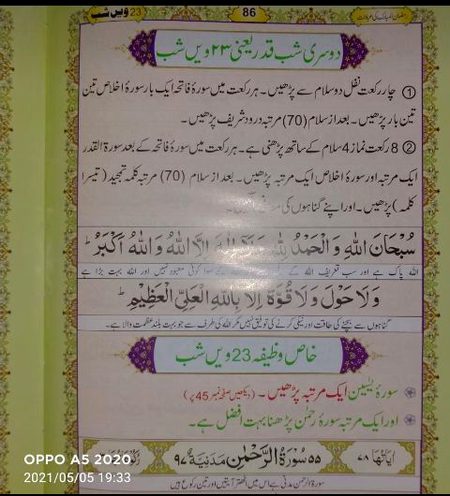 23 ویں شب
86
دوسری شب قدر یعنی ۲۳ ویں شب
① چار رکعت نفل دو سلام سے پڑھیں۔ ہر رکعت میں سورۂ فاتحہ ایک بار سورۂ اخلاص تین
تین بار پڑھیں۔ بعد از سلام (70) مرتبہ درود شریف پڑھیں۔
② 8 رکعت نماز 4 سلام کے ساتھ پڑھنی ہے۔ ہر رکعت میں سورۂ فاتحہ کے بعد سورۃ القدر
ایک مرتبہ اور سورۂ اخلاص ایک مرتبہ پڑھیں۔ بعد از سلام (70) مرتبہ کلمہ تمجید (تیسرا
کلمہ) پڑھیں۔ اور اپنے گناہوں کی
سُبْحَانَ اللهِ وَ الْحَمْدُ لِلّٰهِ وَلَا اِلٰهَ اِلَّا اللهُ وَ اللهُ اَكْبَرُ ؕ
اللہ پاک ہے اور سب تعریف اللہ کے معبود نہیں اور اللہ بہت بڑا ہے
وَ لَا حَوْلَ وَ لَا قُوَّةَ اِلَّا بِاللهِ الْعَلِيِّ الْعَظِيْمِ ؕ
گناہوں سے بچنے کی طاقت اور نیکی کرنے کی توفیق نہیں مگر اللہ کی طرف سے جو بہت بلند عظمت والا ہے۔
خاص وظیفہ 23 ویں شب
سورۂ یٰسین ایک مرتبہ پڑھیں۔ (دیکھیں صفحہ نمبر 45 پر)
اور ایک مرتبہ سورۂ رحمٰن پڑھنا بہت افضل ہے۔
اٰيَاتُهَا ۷۸
۵۵ سُوْرَةُ الرَّحْمٰنِ مَدَنِيَّةٌ ۹۷
سورۃ الرحمٰن مدنی ہے اس میں اٹھتر آیتیں اور تین رکوع ہیں
OPPO A5 2020
2021/05/05 19:33